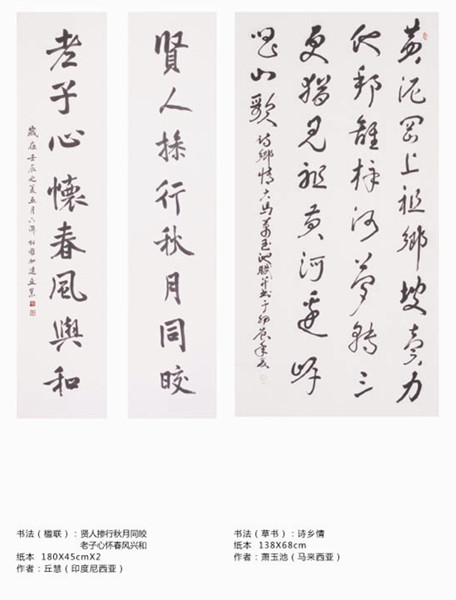 黃泥岡上祖鄉坡賣力
他邦離梓河夢轉三
更猶見祖黃河邊岸
唱山歌
詩鄉情
賢人操行秋月同皎
老子心懷春風與和
歲在壬辰之夏五月
书法（楹联）：贤人掺行秋月同咬
老子心怀春风兴和
纸本 180X45cmX2
作者：丘慧（印度尼西亚）
书法（草书）：诗乡情
纸本 138X68cm
作者：萧玉池（马来西亚）